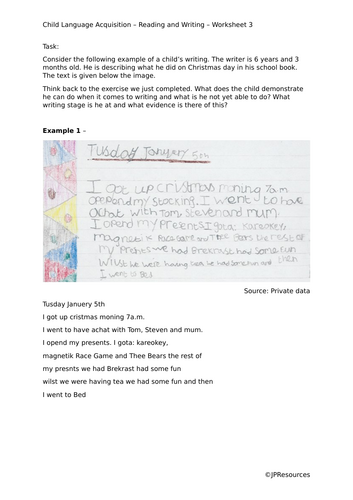 Child Language Acquisition – Reading and Writing – Worksheet 3
Task:
Consider the following example of a child's writing. The writer is 6 years and 3
months old. He is describing what he did on Christmas day in his school book.
The text is given below the image.
Think back to the exercise we just completed. What does the child demonstrate
he can do when it comes to writing and what is he not yet able to do? What
writing stage is he at and what evidence is there of this?
Example 1 –
Tusday Januyery 5th
I got up cristmas moning 7am
opepnd my stocking. I went to have
achat with Tom, Steven and mum.
I opend my presents I gota: kareokey,
magnetik Race Game and Thee Bears the rest of
my presnts we had Brekrast had some fun
wilst we were having tea we had some fun and then
I went to Bed
Source: Private data
Tusday Januery 5th
I got up cristmas moning 7a.m.
I went to have achat with Tom, Steven and mum.
I opend my presents. I gota: kareokey,
magnetik Race Game and Thee Bears the rest of
my presnts we had Brekrast had some fun
wilst we were having tea we had some fun and then
I went to Bed
©JPResources